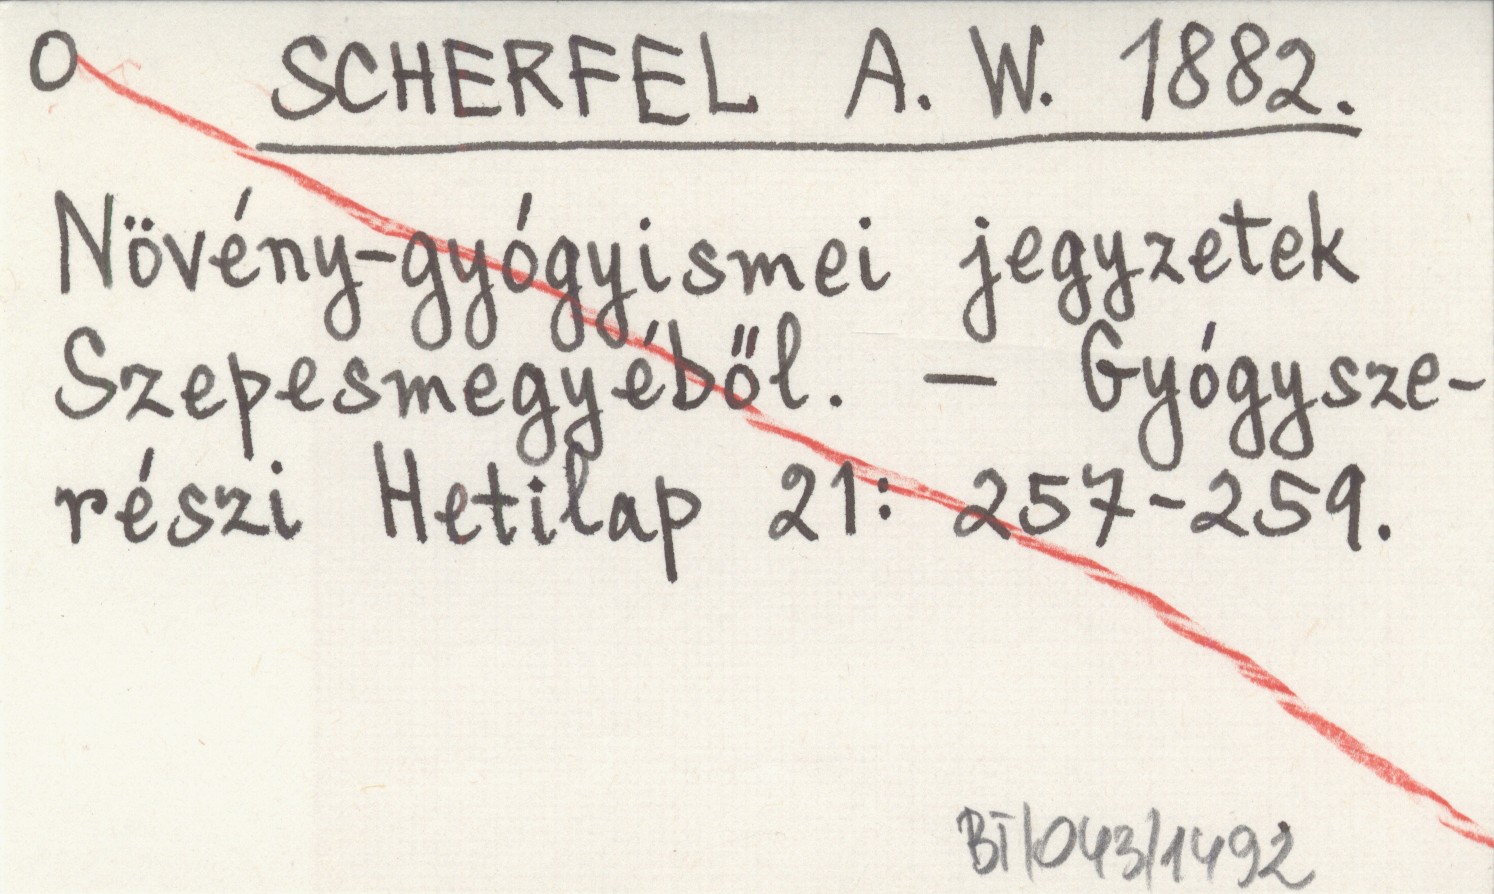 O SCHERFEL A. W. 1882.
Növény-gyógyismei jegyzetek
Szepesmegyéből. — Gyógysze-
részi Hetilap 21: 257-259.
BT/043/1492